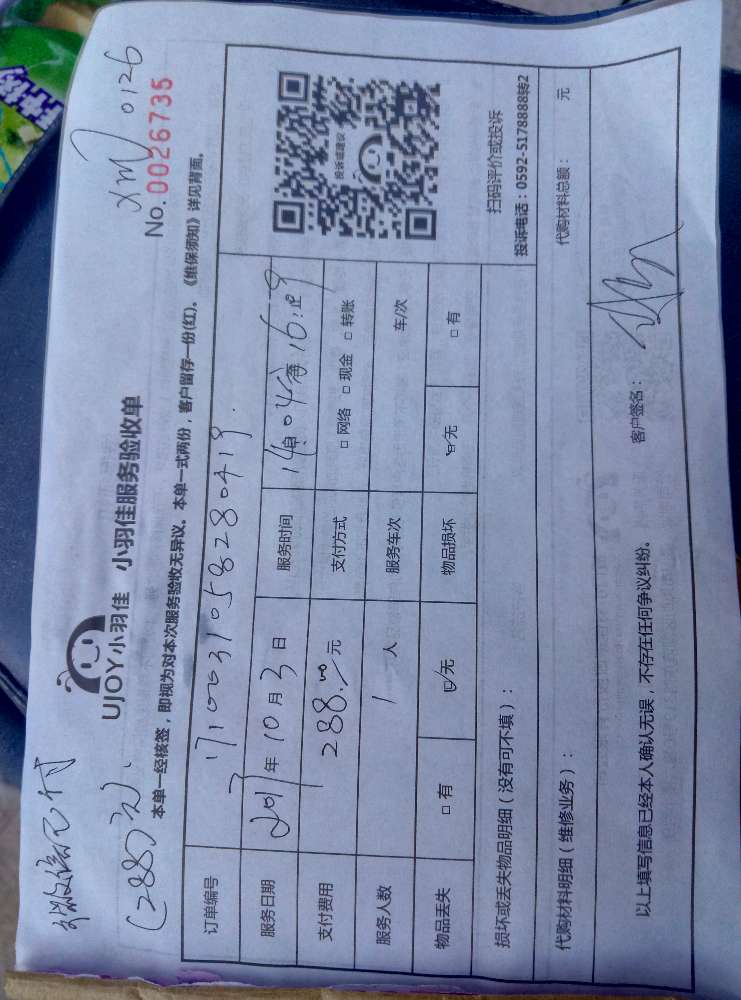 xm 0126
No.0026735
(288元)
UJOY小羽佳 小羽佳服务验收单
本单一经核签，即视为对本次服务验收无异议。本单一式两份，客户留存一份(红)。《维保须知》详见背面。
订单编号 171003105828 0419
服务日期 2017年10月3日 服务时间
支付费用 288.00元 支付方式 □ 网络 □ 现金 □ 转账
服务人数 1 人 服务车次 车/次
物品丢失 □ 有 ☑无 物品损坏 ☑无 □ 有
投诉或建议
扫码评价或投诉
投诉电话：0592-5178888转2
损坏或丢失物品明细（没有可不填）：
代购材料明细（维修业务）： 代购材料总额： 元
以上填写信息已经本人确认无误，不存在任何争议纠纷。 客户签名：